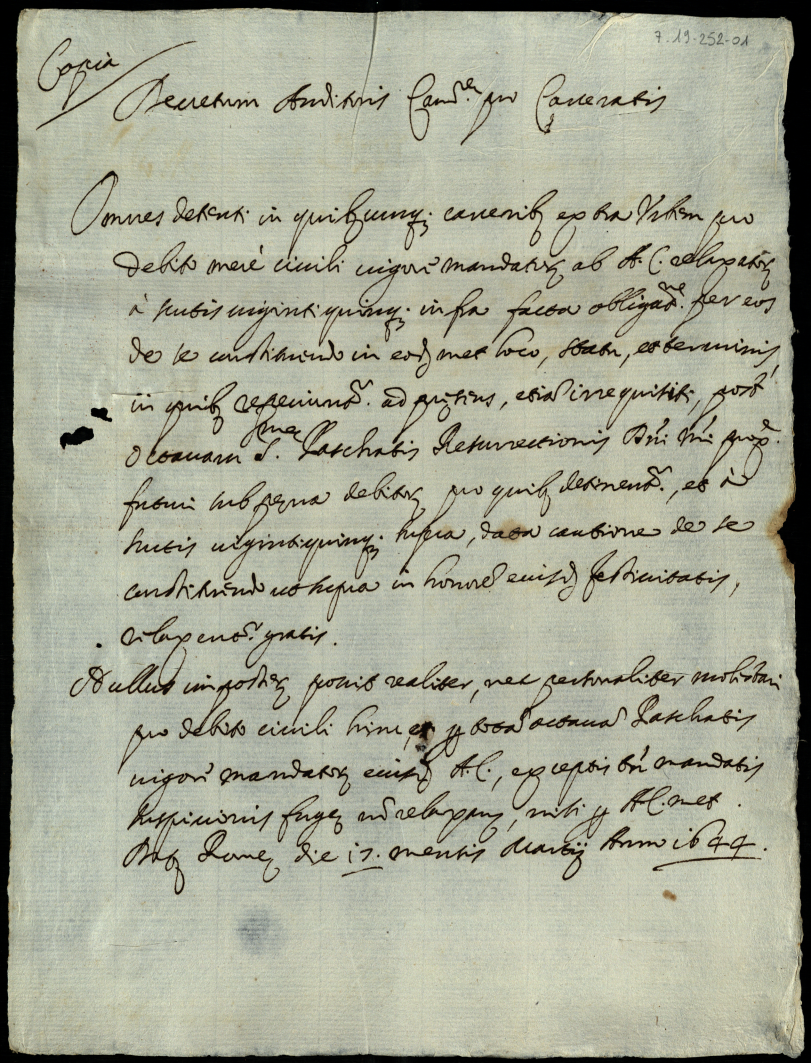 7.19-252-01
Copia
Decretum Auditoris Cam.ę pro Carceratis
Omnes detenti in quibuscunq; carcerib; extra Urbem pro
debito merè civili vigore mandator. ab A. C. relaxator.
à scutis vigintiquinq; infra facta obligat.ne per eos
de se constituendo in eod. met loco, statu, et terminis,
in quib; reperiunt.r ad pręsens, etiã irrequisiti, post
octavam S.mę Paschatis Resurrectionis Dñi Ñri prox.
futuri sub pęna debitor. pro quib; detinent.r, et à
scutis vigintiquinq; supra, data cautione de se
constituendo ut supra in honorẽ eiusd. festivitatis,
relaxent.r gratis.
Nullus in poster. possit realiter, nec personaliter molestari
pro debito civili hinc, et p totã octavã Paschatis
vigore mandator. eiusd. A. C., exceptis tñ mandatis
suspicionis fugę nõ relaxans, nisi p A. C. met.
Dat. Romę die 17. mensis Martij Anno 1644.